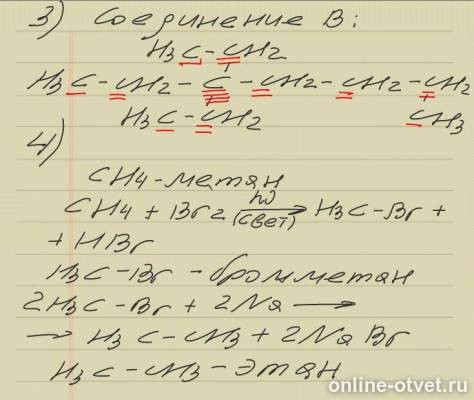 3) Соединение В:
H3C-CH2
H3C-CH2-C-CH2-CH2-CH2
H3C-CH2 CH3
4)
CH4-метан
CH4 + Br2 hν (свет) → H3C-Br +
+ HBr
H3C-Br - бромметан
2H3C-Br + 2Na →
→ H3C-CH3 + 2NaBr
H3C-CH3-этан
online-otvet.ru